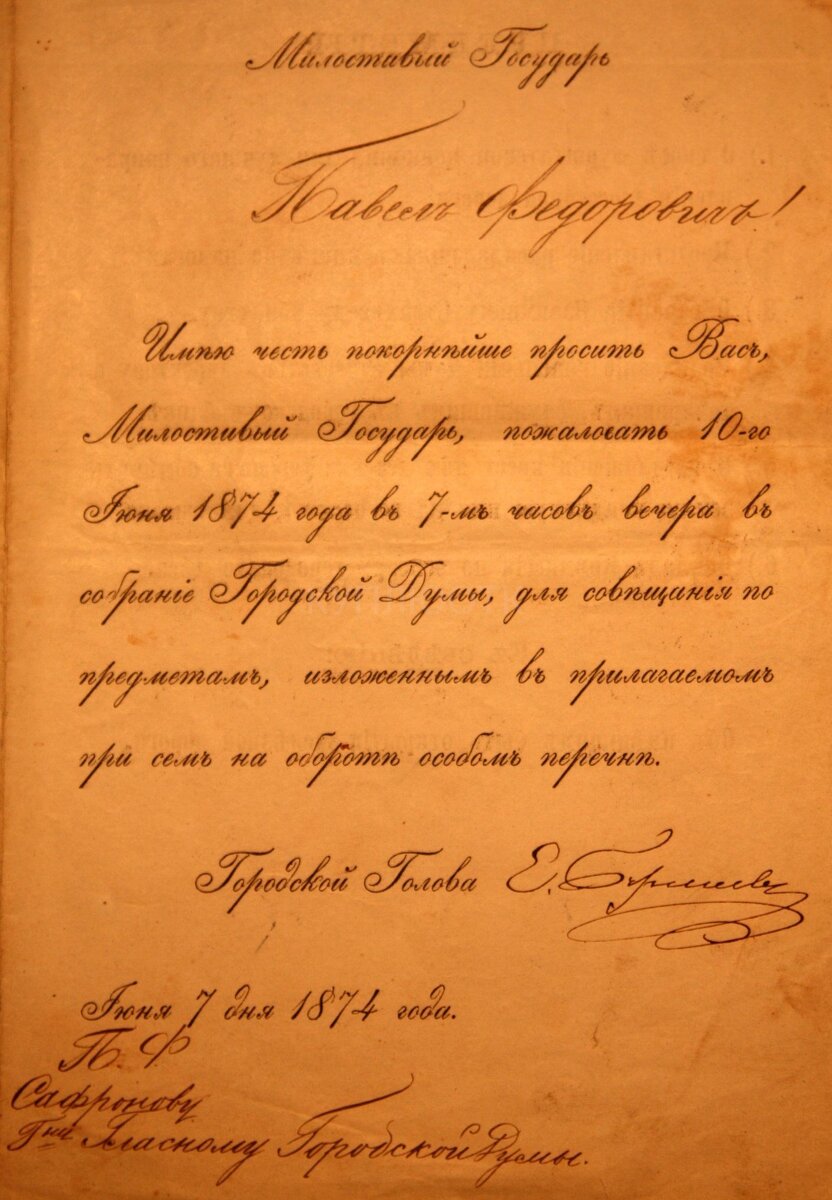 Милостивый Государь
Павелъ Федоровичъ!
Имѣю честь покорнѣйше просить Васъ,
Милостивый Государь, пожаловать 10-го
Іюня 1874 года въ 7-мъ часовъ вечера въ
собраніе Городской Думы, для совѣщанія по
предметамъ, изложеннымъ въ прилагаемомъ
при семъ на оборотѣ особомъ перечнѣ.
Городской Голова Е.
Іюня 7 дня 1874 года.
П. Ф.
Сафронову
Гласному Городской Думы.